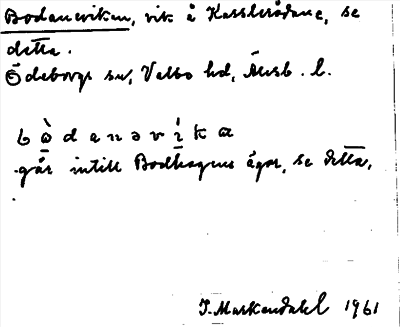 Bodaneviken, vik å Kasslesådane, se
detta.
Ödeborgs sn, Valbo hd, Älvsb. l.
b ò̱ d a n ə v í̱ k a
går intill Bodhagens ägor, se detta.
J. Markendahl 1961